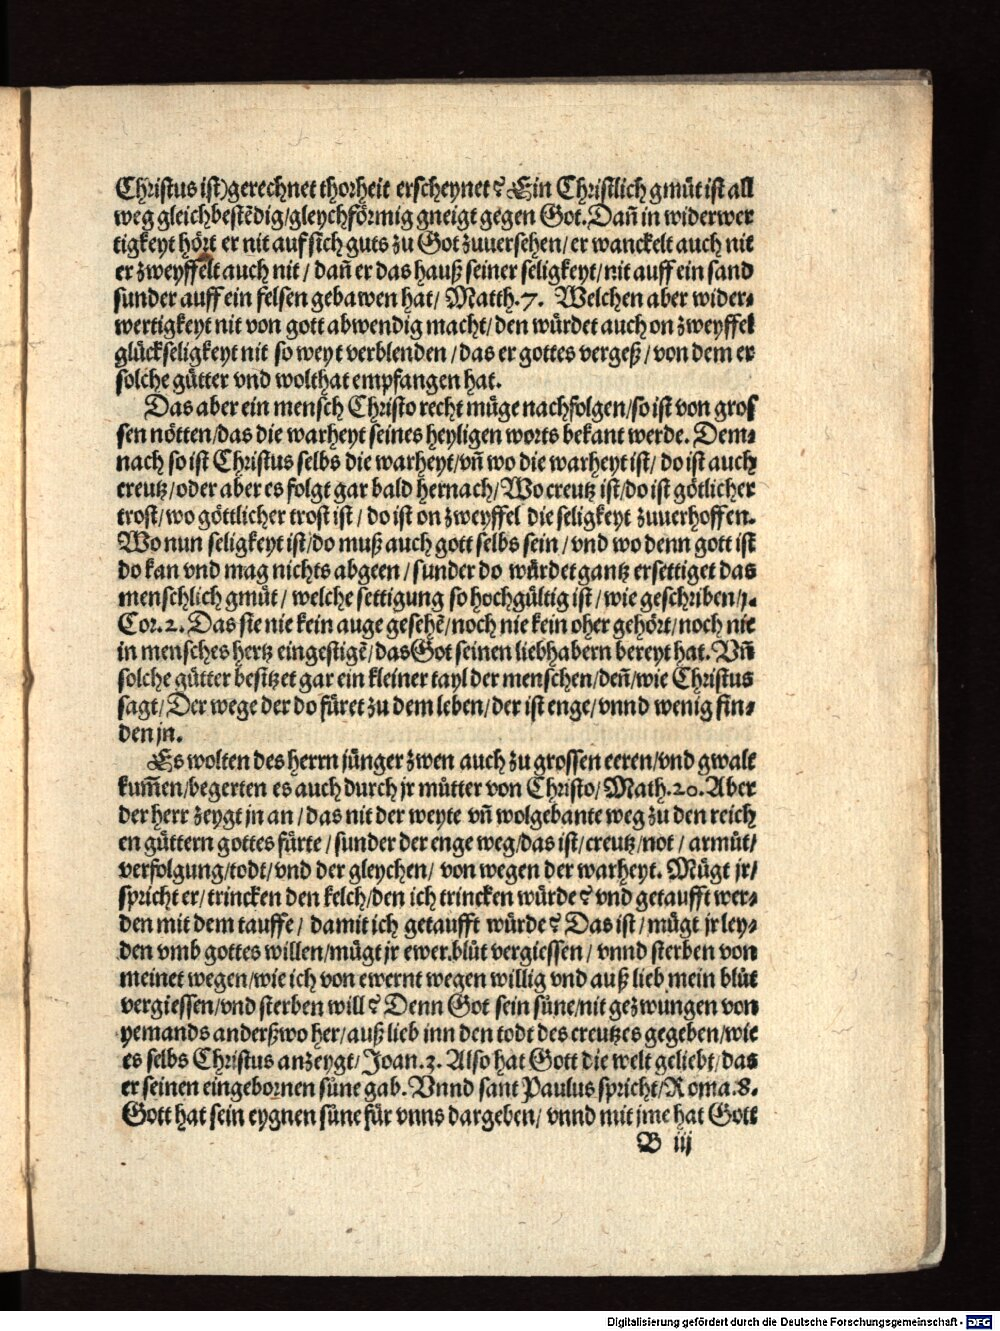 Christus ist) gerechnet thorheit erscheynet? Ein Christlich gmůt ist all
weg gleichbestẽdig/gleychförmig gneigt gegen Got. Dañ in widerwer
tigkeyt hört er nit auf sich guts zu Got zuuersehen/er wanckelt auch nit
er zweyffelt auch nit/ dañ er das hauß seiner seligkeyt/nit auff ein sand
sunder auff ein felsen gebawen hat/ Matth.7. Welchen aber wider⸗
wertigkeyt nit von gott abwendig macht/den würdet auch on zweyffel
glückseligkeyt nit so weyt verblenden/das er gottes vergeß/von dem er
solche gütter vnd wolthat empfangen hat.
Das aber ein mensch Christo recht müge nachfolgen/so ist von gros
sen nötten/das die warheyt seines heyligen worts bekant werde. Dem⸗
nach so ist Christus selbs die warheyt/vñ wo die warheyt ist/ do ist auch
creutz/oder aber es folgt gar bald hernach/Wo creutz ist/do ist götlicher
trost/wo göttlicher trost ist/ do ist on zweyffel die seligkeyt zuuerhoffen.
Wo nun seligkeyt ist/do muß auch gott selbs sein/vnd wo denn gott ist
do kan vnd mag nichts abgeen/sunder do würdet gantz ersettiget das
menschlich gmůt/ welche settigung so hochgültig ist/wie geschriben/1.
Cor.2. Das sie nie kein auge gesehẽ/noch nie kein oher gehört/noch nie
in mensches hertz eingestigẽ/das Got seinen liebhabern bereyt hat. Vñ
solche gütter besitzet gar ein kleiner tayl der menschen/deñ/wie Christus
sagt/Der wege der do füret zu dem leben/der ist enge/vnnd wenig fin⸗
den jn.
Es wolten des herrn jünger zwen auch zu grossen eeren/vnd gwalt
kum̃en/begerten es auch durch jr můtter von Christo/Math.20. Aber
der herr zeygt jn an/das nit der weyte vñ wolgebante weg zu den reich
en güttern gottes fürte/sunder der enge weg/das ist/creutz/not/ armůt/
verfolgung/todt/vnd der gleychen/ von wegen der warheyt. Mügt jr/
spricht er/trincken den kelch/den ich trincken würde? vnd getaufft wer⸗
den mit dem tauffe/ damit ich getaufft würde? Das ist/mügt jr ley⸗
den vmb gottes willen/mügt jr ewer blůt vergiessen/ vnnd sterben von
meinet wegen/wie ich von ewernt wegen willig vnd auß lieb mein blůt
vergiessen/vnd sterben will? Denn Got sein süne/nit gezwungen von
yemands anderßwo her/auß lieb inn den todt des creutzes gegeben/wie
es selbs Christus anzeygt/Joan.3. Also hat Gott die welt geliebt/das
er seinen eingebornen süne gab. Vnnd sant Paulus spricht/Roma.8.
Gott hat sein eygnen süne für vnns dargeben/ vnnd mit jme hat Gott
B iij
Digitalisierung gefördert durch die Deutsche Forschungsgemeinschaft - DFG